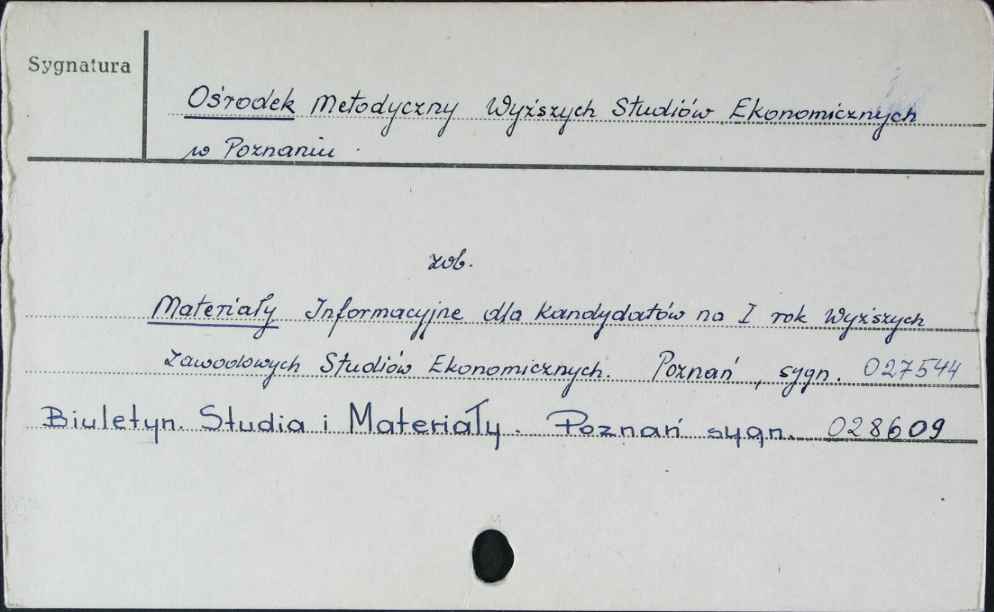 Sygnatura
Ośrodek Metodyczny Wyższych Studiów Ekonomicznych
w Poznaniu
zob.
Materiały Informacyjne dla kandydatów na I rok Wyższych
Zawodowych Studiów Ekonomicznych. Poznań, sygn. 027544
Biuletyn. Studia i Materiały. Poznań sygn. 028609